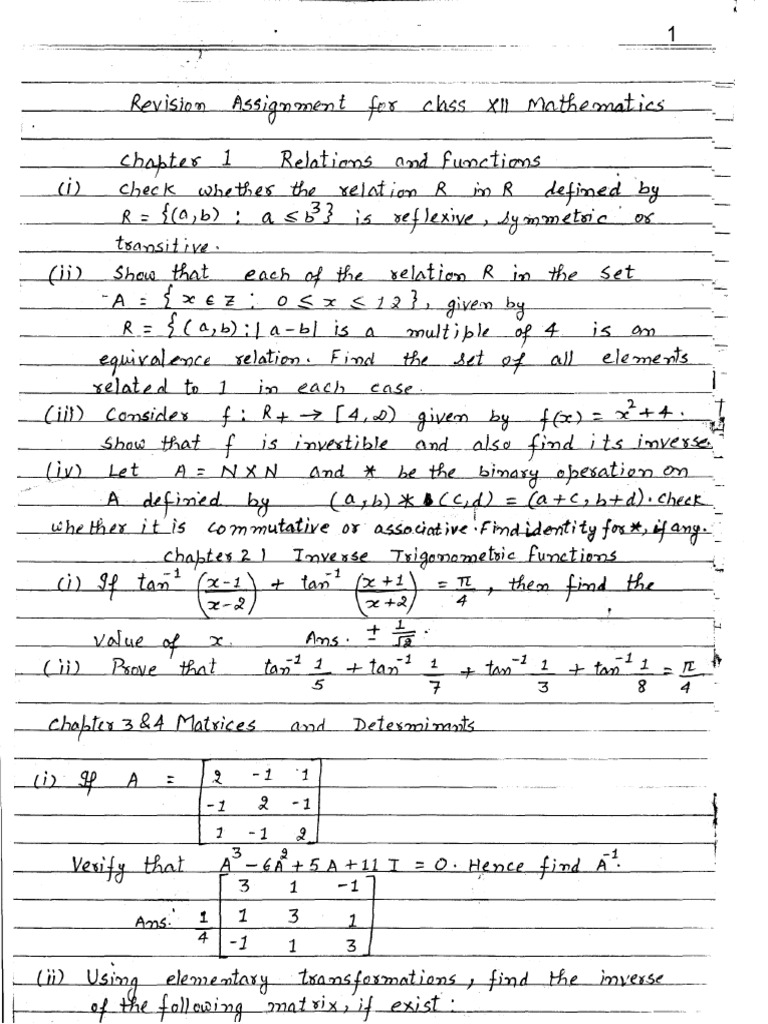 1
Revision Assignment for class XII Mathematics
Chapter 1 Relations and Functions
(i) Check whether the relation R in R defined by
R = {(a,b) : a ≤ b³} is reflexive, symmetric or
transitive.
(ii) Show that each of the relation R in the set
A = {x ∈ Z : 0 ≤ x ≤ 12}, given by
R = {(a,b) : |a-b| is a multiple of 4 is an
equivalence relation. Find the set of all elements
related to 1 in each case.
(iii) Consider f : R₊ → [4,∞) given by f(x) = x²+4.
Show that f is invertible and also find its inverse.
(iv) Let A = N×N and * be the binary operation on
A defined by (a,b) * (c,d) = (a+c, b+d). Check
whether it is commutative or associative. Find identity for *, if any.
Chapter 2 | Inverse Trigonometric Functions
(i) If tan⁻¹ (x-1/x-2) + tan⁻¹ (x+1/x+2) = π/4, then find the
value of x. Ans. ± 1/√2.
(ii) Prove that tan⁻¹ 1/5 + tan⁻¹ 1/7 + tan⁻¹ 1/3 + tan⁻¹ 1/8 = π/4
Chapter 3 & 4 Matrices and Determinants
(i) If A = [2 -1 1
-1 2 -1
1 -1 2]
Verify that A³ - 6A² + 5A + 11 I = 0. Hence find A⁻¹.
Ans: 1/4 [3 1 -1
1 3 1
-1 1 3]
(ii) Using elementary transformations, find the inverse
of the following matrix, if exist :